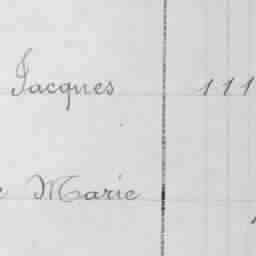 Jacques 111
Marie